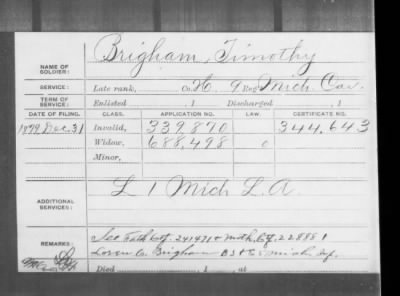 Brigham, Timothy
NAME OF SOLDIER:
SERVICE: Late rank, Co. H, 9 Reg Mich. Cav.
TERM OF SERVICE: Enlisted , 1 Discharged , 1
DATE OF FILING. CLASS. APPLICATION NO. LAW. CERTIFICATE NO.
1879 Dec. 31 Invalid, 339,870 344,643
Widow, 688,498 0
Minor,
ADDITIONAL SERVICES: L 1 Mich L. A.
REMARKS: See Fath Ctf. 241471 + Moth. Ctf. 228881
Loren C. Brigham
Died , 1 , at